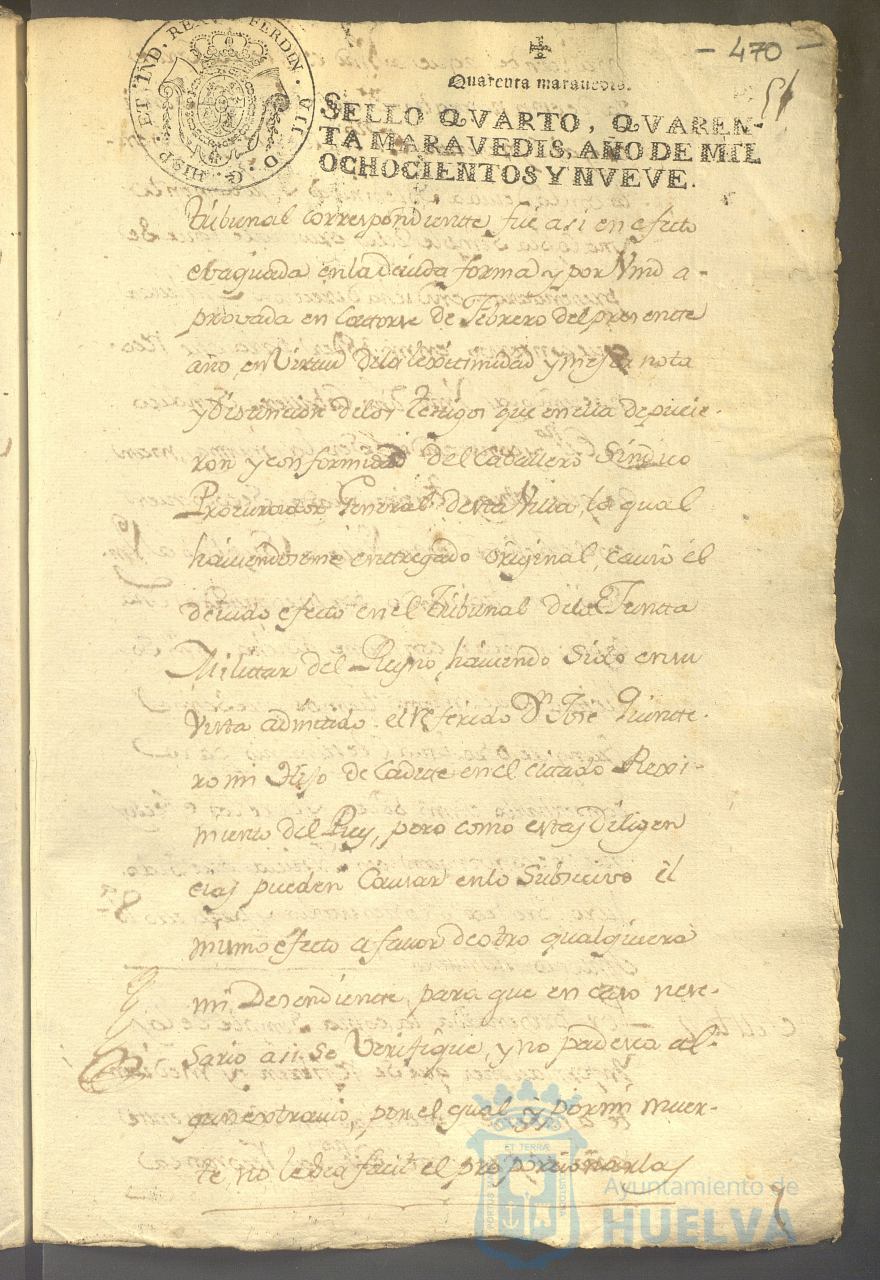 HISP. ET IND. REX FERDIN. VII. D. G.
- 470 -
51
Quarenta maravedis.
SELLO QVARTO, QVAREN-
TA MARAVEDIS, AÑO DE MIL
OCHOCIENTOS Y NVEVE.
tribunal correspondiente, fue asi en efecto
ebaquada en la devida forma, y por Vmd a-
provada en Catorse de Febrero del presente
año, en virtud dela lexitimidad y mejor nota
y Distincion delos testigos que en ella depucie-
ron y conformidad del Caballero Sindico
Procurador General desta Villa, la qual
haviendoseme entregado original, causó el
devido efecto en el tribunal dela Juncta
Militar del Reyno, haviendo Sido en su
Vista admitido el referido Dn. Jose Quinte-
ro mi Hijo de Cadete en el citado Rexi-
miento del Rey, pero como estas Diligen
cias pueden Causar en lo Subcecivo él
mismo efecto a favor de otro qualquiera
mi Desendiente, para que en caso nese-
Sario asi Se Verifique, y no padesca al-
gun extravio, por el qual y por mi muer-
te, no le sea facil el proporcionarlas
PORTUS MARIS ET TERRAE CUSTODIA
Ayuntamiento de
HUELVA